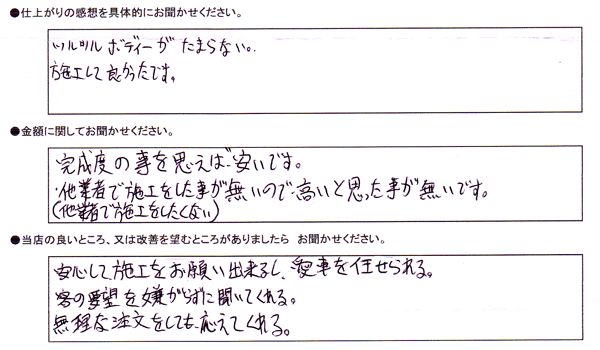 ●仕上がりの感想を具体的にお聞かせください。
ツルツルボディーがたまらない。
施工して良かったです。
●金額に関してお聞かせください。
完成度の事を思えば安いです。
・他業者で施工をした事が無いので高いと思った事が無いです。
(他業者で施工をしたくない)
●当店の良いところ、又は改善を望むところがありましたら お聞かせください。
安心して施工をお願い出来るし、愛車を任せられる。
客の要望を嫌がらずに聞いてくれる。
無理な注文をしても応えてくれる。